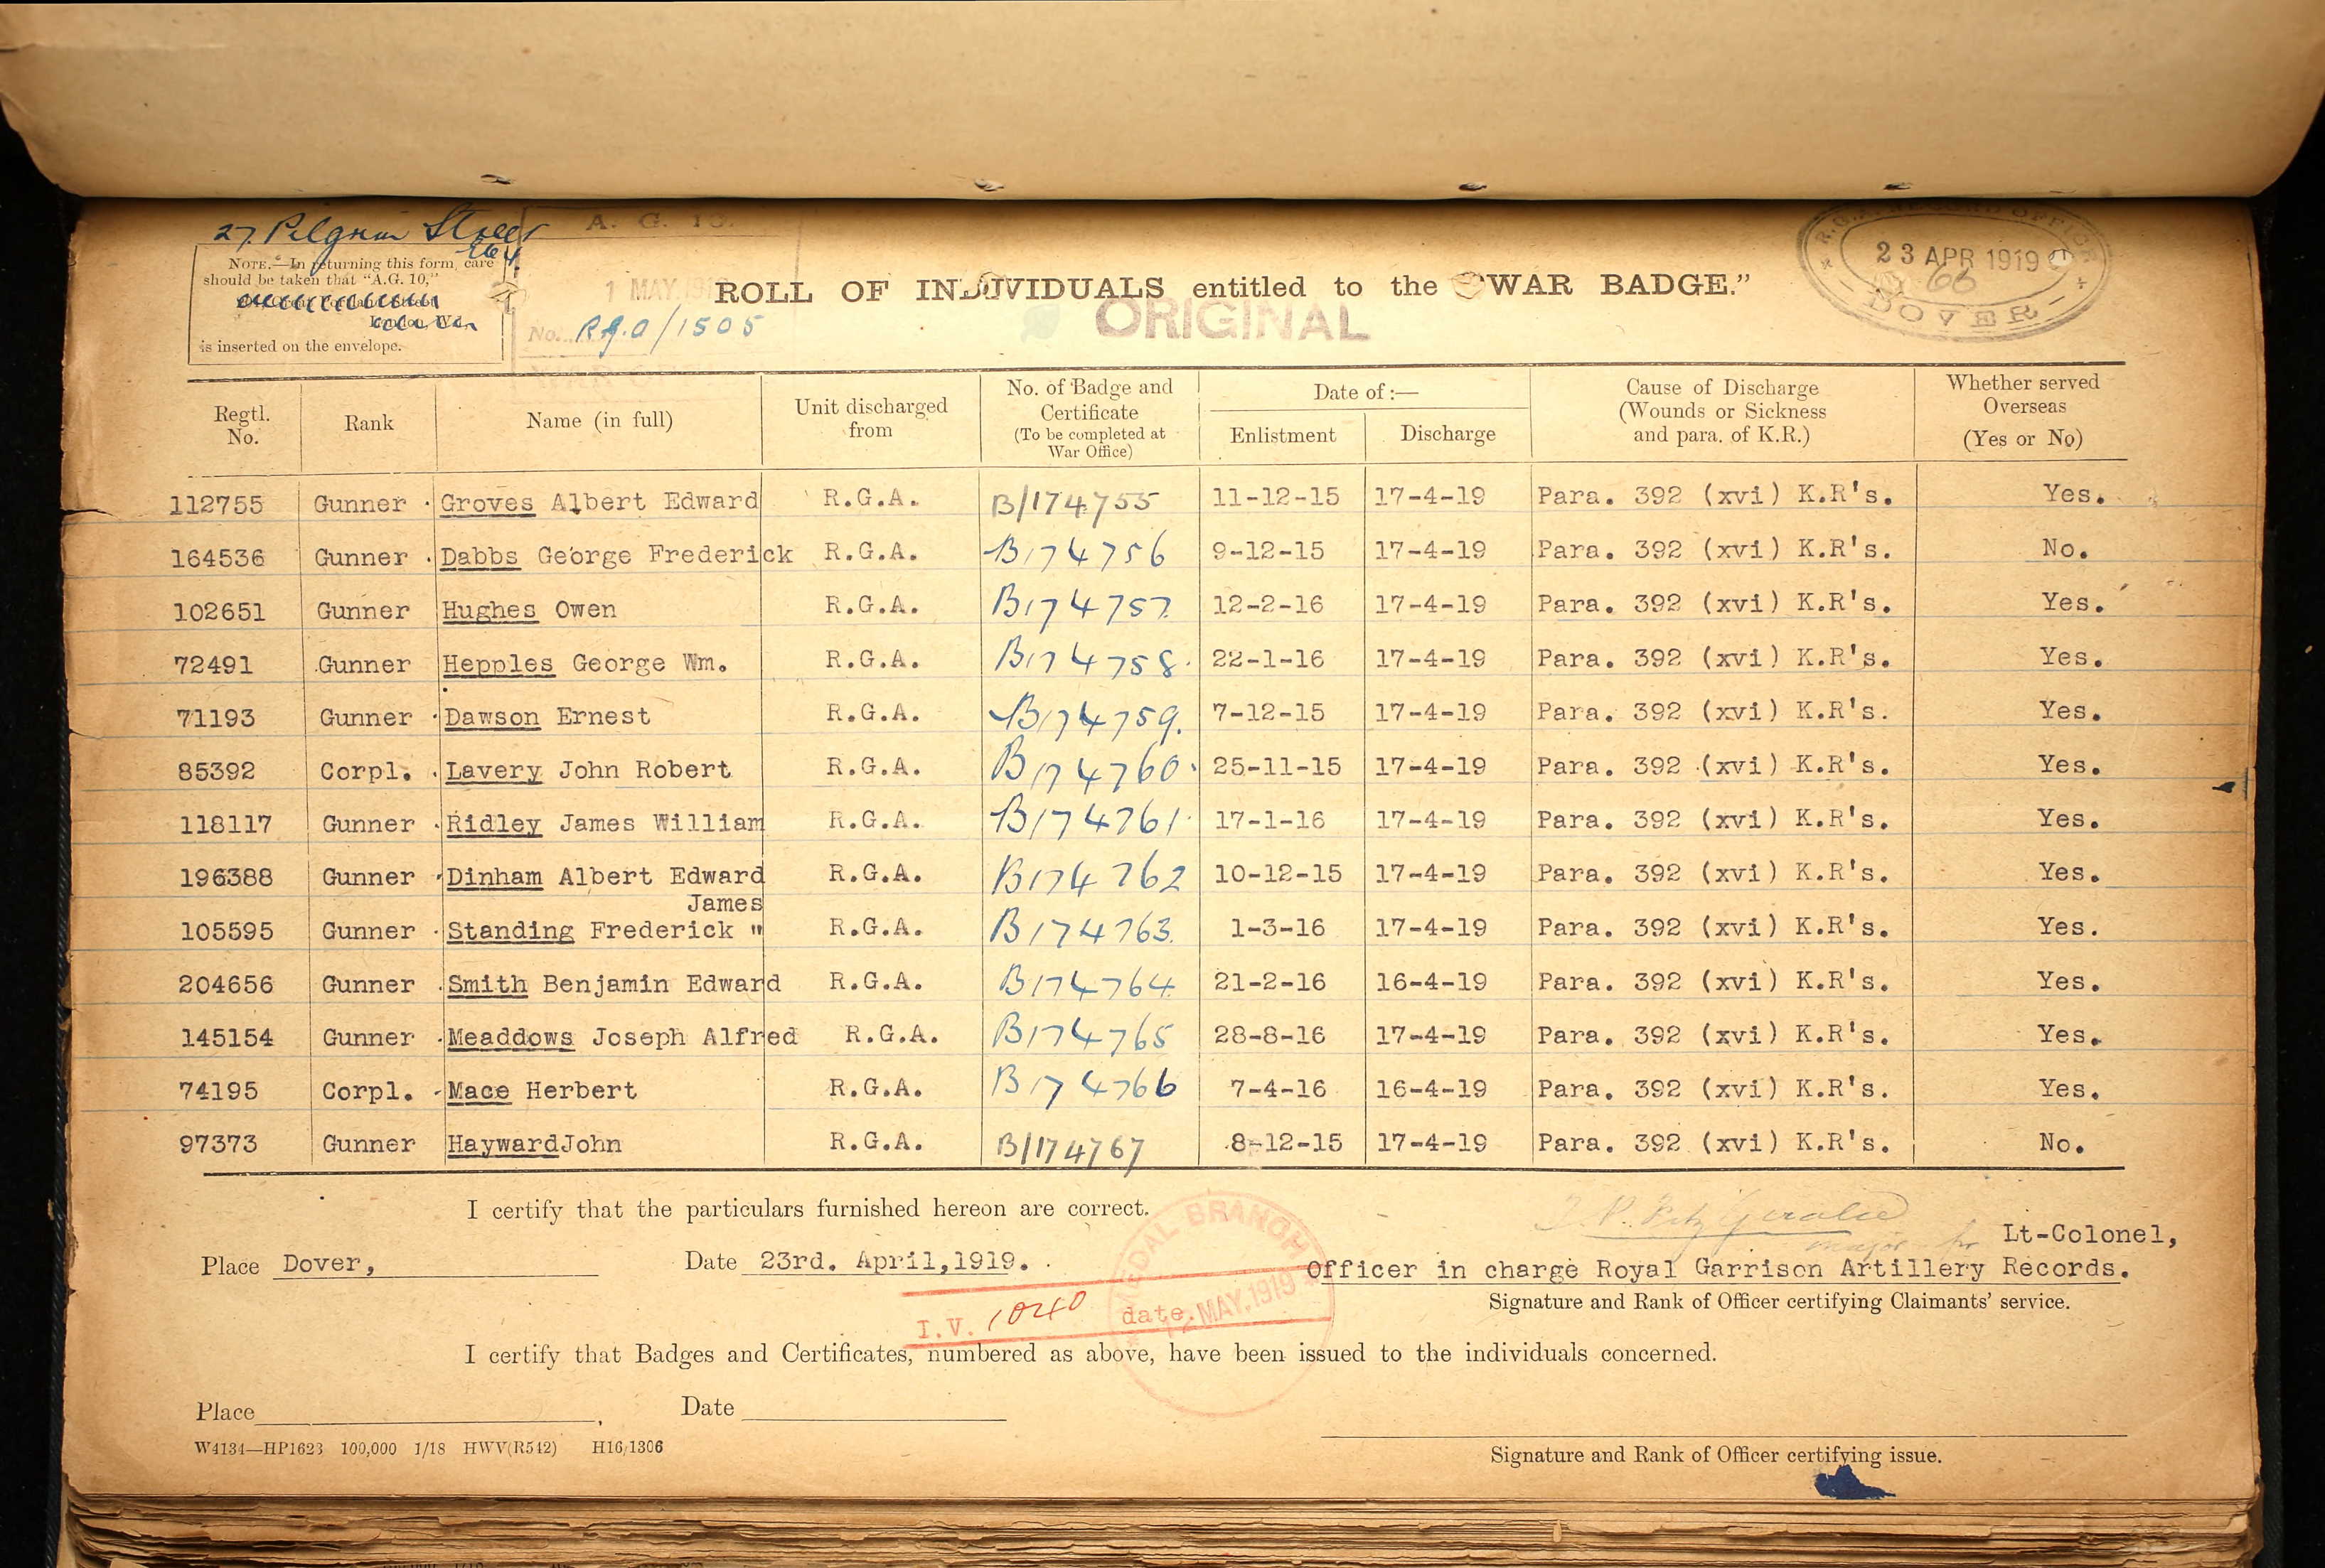 27. Pilgrim Street
EC4.
A. G. 10.
NOTE.—In returning this form, care
should be taken that "A.G. 10,"
is inserted on the envelope.
1 MAY 191
No. R.G.A/1505
ROLL OF INDIVIDUALS entitled to the "WAR BADGE."
ORIGINAL
R.G.A. RECORD OFFICE
23 APR 1919
66
DOVER
Regtl. No. Rank Name (in full) Unit discharged from No. of Badge and Certificate (To be completed at War Office) Date of:— Enlistment Discharge Cause of Discharge (Wounds or Sickness and para. of K.R.) Whether served Overseas (Yes or No)
112755 Gunner Groves Albert Edward R.G.A. B/174755 11-12-15 17-4-19 Para. 392 (xvi) K.R's. Yes.
164536 Gunner Dabbs George Frederick R.G.A. B174756 9-12-15 17-4-19 Para. 392 (xvi) K.R's. No.
102651 Gunner Hughes Owen R.G.A. B174757. 12-2-16 17-4-19 Para. 392 (xvi) K.R's. Yes.
72491 Gunner Hepples George Wm. R.G.A. B174758. 22-1-16 17-4-19 Para. 392 (xvi) K.R's. Yes.
71193 Gunner Dawson Ernest R.G.A. B174759. 7-12-15 17-4-19 Para. 392 (xvi) K.R's. Yes.
85392 Corpl. Lavery John Robert R.G.A. B174760. 25-11-15 17-4-19 Para. 392 (xvi) K.R's. Yes.
118117 Gunner Ridley James William R.G.A. B174761. 17-1-16 17-4-19 Para. 392 (xvi) K.R's. Yes.
196388 Gunner Dinham Albert Edward R.G.A. B174762 10-12-15 17-4-19 Para. 392 (xvi) K.R's. Yes.
James
105595 Gunner Standing Frederick " R.G.A. B174763. 1-3-16 17-4-19 Para. 392 (xvi) K.R's. Yes.
204656 Gunner Smith Benjamin Edward R.G.A. B174764. 21-2-16 16-4-19 Para. 392 (xvi) K.R's. Yes.
145154 Gunner Meaddows Joseph Alfred R.G.A. B174765 28-8-16 17-4-19 Para. 392 (xvi) K.R's. Yes.
74195 Corpl. Mace Herbert R.G.A. B174766 7-4-16 16-4-19 Para. 392 (xvi) K.R's. Yes.
97373 Gunner HaywardJohn R.G.A. B/174767 8-12-15 17-4-19 Para. 392 (xvi) K.R's. No.
I certify that the particulars furnished hereon are correct.
Major for Lt-Colonel,
Place Dover, Date 23rd. April,1919. Officer in charge Royal Garrison Artillery Records.
Signature and Rank of Officer certifying Claimants' service.
MEDAL BRANCH
12 MAY. 1919
I.V. 1040 date.
I certify that Badges and Certificates, numbered as above, have been issued to the individuals concerned.
Place Date
W4134—HP1623 100,000 1/18 HWV(R542) H16/1306
Signature and Rank of Officer certifying issue.